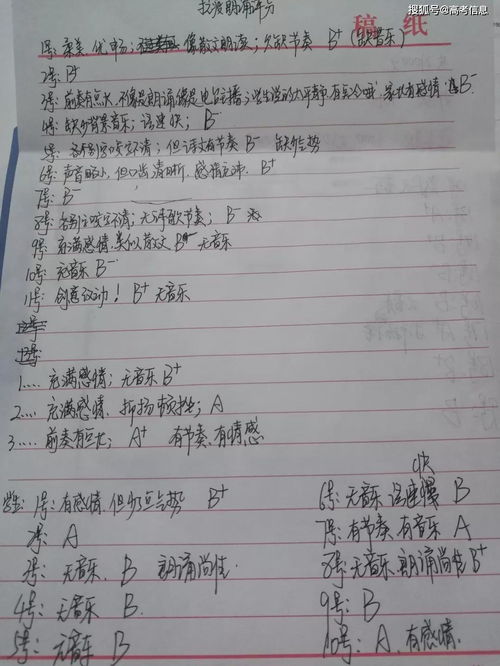 搜狐号@高考信息
朗诵评分
稿 纸
1号: 柔美、优申; 像散文朗读; 欠缺节奏 B+ (缺音乐)
2号: B+
3号: 前奏有点长, 不像是朗诵像是电台主播; 家长有感情 B-
4号: 缺少背景音乐; 语速快; B-
5号: 各别字咬字不清; 但语文有节奏 B- 缺少气势
6号: 声音略小, 但口齿清晰, 感情充沛. B+
7号: B-
8号: 各别字咬字不清; 无音乐节奏; B-
9号: 充满感情, 类似散文 B- 无音乐
10号: 无音乐 B-
11号: 创意议动! B+ 无音乐
12号:
13号:
1.... 充满感情; 无音乐 B+
2.... 充满感情. 抑扬顿挫; A
3.... 前奏有点长; A+ 有节奏, 有情感
1号: 有感情, 但少点气势 B+
2号: A
3号: 无音乐. B 朗诵尚佳.
4号: 无音乐 B.
5号: 无音乐 B
快
6号: 无音乐 语速慢 B
7号: 有节奏, 有音乐 A
8号: 无音乐. 朗诵尚佳 B+
9号: B
10号: A. 有感情.